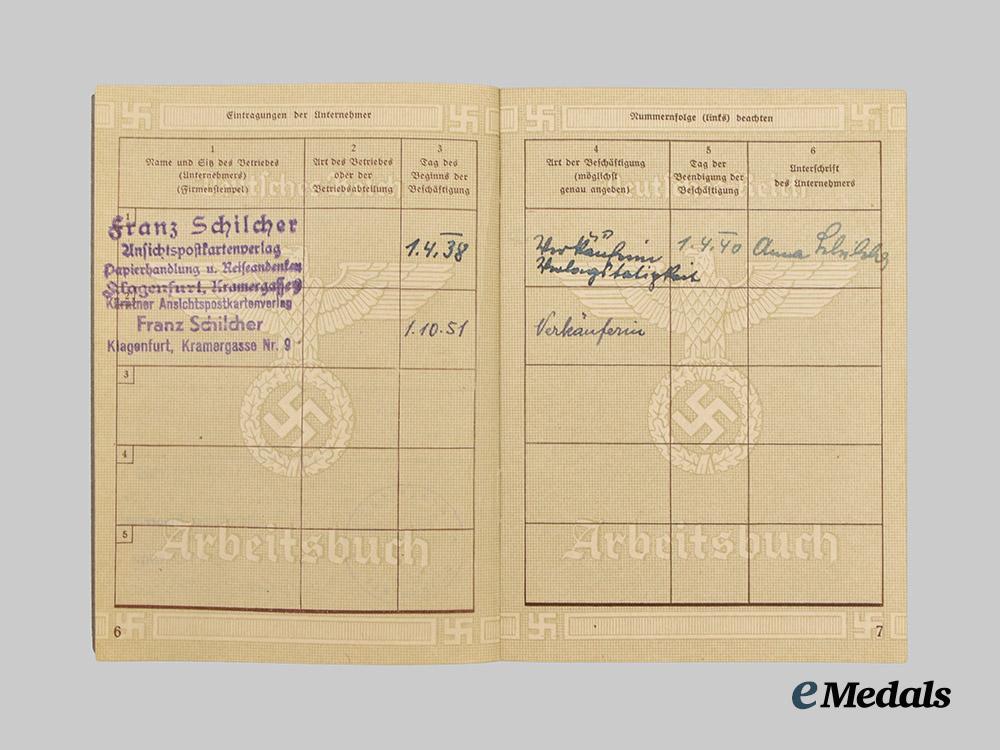 Eintragungen der Unternehmer
1
Name und Sitz des Betriebes
(Unternehmers)
(Firmenstempel)
2
Art des Betriebes
oder der
Betriebsabteilung
3
Tag des
Beginns der
Beschäftigung
Deutsches Reich
1
Franz Schilcher
Ansichtspostkartenverlag
Papierhandlung u. Reiseandenken
Klagenfurt, Kramergasse 9
1.4.38
Kärntner Ansichtspostkartenverlag
Franz Schilcher
Klagenfurt, Kramergasse Nr. 9
1.10.51
3
4
5
Arbeitsbuch
6
Nummernfolge (links) beachten
4
Art der Beschäftigung
(möglichst
genau angeben)
5
Tag der
Beendigung der
Beschäftigung
6
Unterschrift
des Unternehmers
Deutsches Reich
Verkäuferin
Verlagstätigkeit
1.4.40
Anna Schilcher
Verkäuferin
Arbeitsbuch
7
eMedals